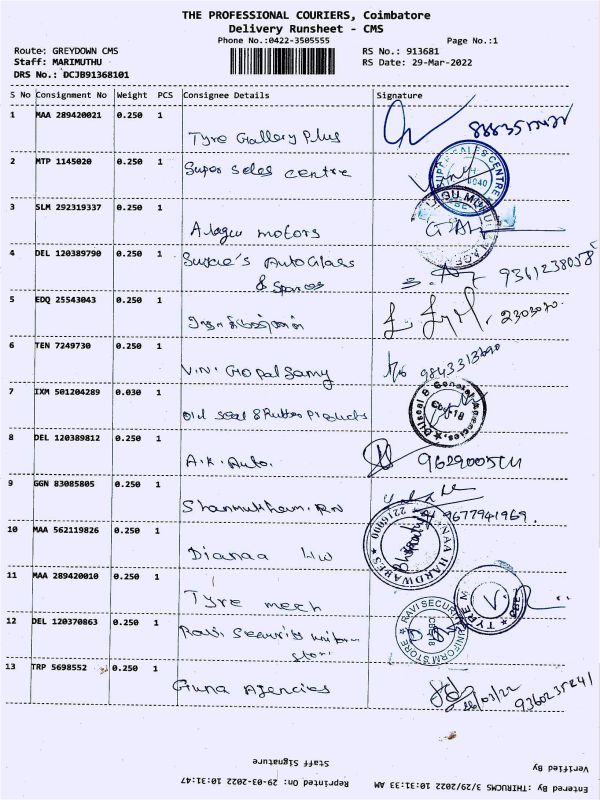 THE PROFESSIONAL COURIERS, Coimbatore
Delivery Runsheet - CMS
Phone No.:0422-3505555
Page No.:1
Route: GREYDOWN CMS
RS No.: 913681
Staff: MARIMUTHU
RS Date: 29-Mar-2022
DRS No.: DCJB91368101
S No Consignment No Weight PCS Consignee Details Signature
1 MAA 289420021 0.250 1
Tyre Gallery Plus
2 MTP 1145020 0.250 1
Super Sales centre
SUPER SALES CENTRE
3 SLM 292319337 0.250 1
Alagu motors
4 DEL 120389790 0.250 1
AutoGlass
& Spares
9361238058
5 EDQ 25543043 0.250 1
6 TEN 7249730 0.250 1
V.N. Gopal Samy
7 IXM 501204289 0.030 1
Oil Seal & Rubber Products
Oilseal & General Agencies,
8 DEL 120389812 0.250 1
A.K. Auto.
9 GGN 83085805 0.250 1
Shanmukham. RN
9677941969.
10 MAA 562119826 0.250 1
Dianaa H/W
HARDWARES
2216900
11 MAA 289420010 0.250 1
Tyre mech
TYRE M
12 DEL 120370863 0.250 1
Ravi Security uniform
store
RAVI SECURITY UNIFORM STORE
13 TRP 5698552 0.250 1
Guna Agencies
9360235241
Staff Signature
Verified By
Reprinted On: 29-03-2022 10:31:47
Entered By :THIRUCMS 3/29/2022 10:31:33 AM